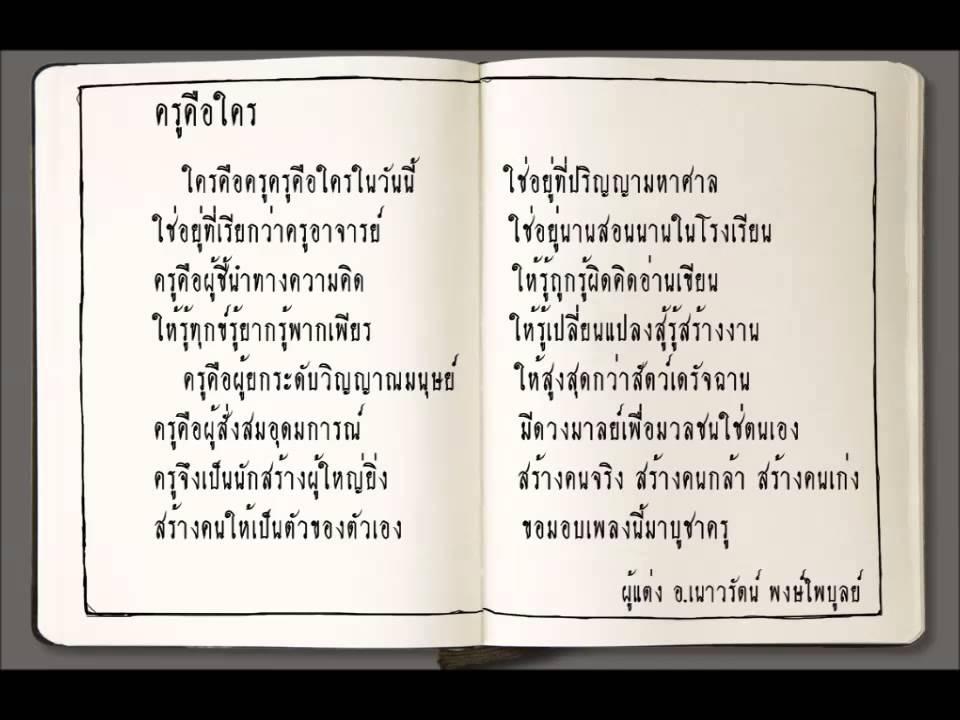 ครูคือใคร
ใครคือครูครูคือใครในวันนี้ ใช่อยู่ที่ปริญญามหาศาล
ใช่อยู่ที่เรียกว่าครูอาจารย์ ใช่อยู่นานสอนนานในโรงเรียน
ครูคือผู้ชี้นำทางความคิด ให้รู้ถูกรู้ผิดคิดอ่านเขียน
ให้รู้ทุกข์รู้ยากรู้พากเพียร ให้รู้เปลี่ยนแปลงสู้รู้สร้างงาน
ครูคือผู้ยกระดับวิญญาณมนุษย์ ให้สูงสุดกว่าสัตว์เดรัจฉาน
ครูคือผู้สั่งสมอุดมการณ์ มีดวงมาลย์เพื่อมวลชนใช่ตนเอง
ครูจึงเป็นนักสร้างผู้ใหญ่ยิ่ง สร้างคนจริง สร้างคนกล้า สร้างคนเก่ง
สร้างคนให้เป็นตัวของตัวเอง ขอมอบเพลงนี้มาบูชาครู
ผู้แต่ง อ.เนาวรัตน์ พงษ์ไพบูลย์